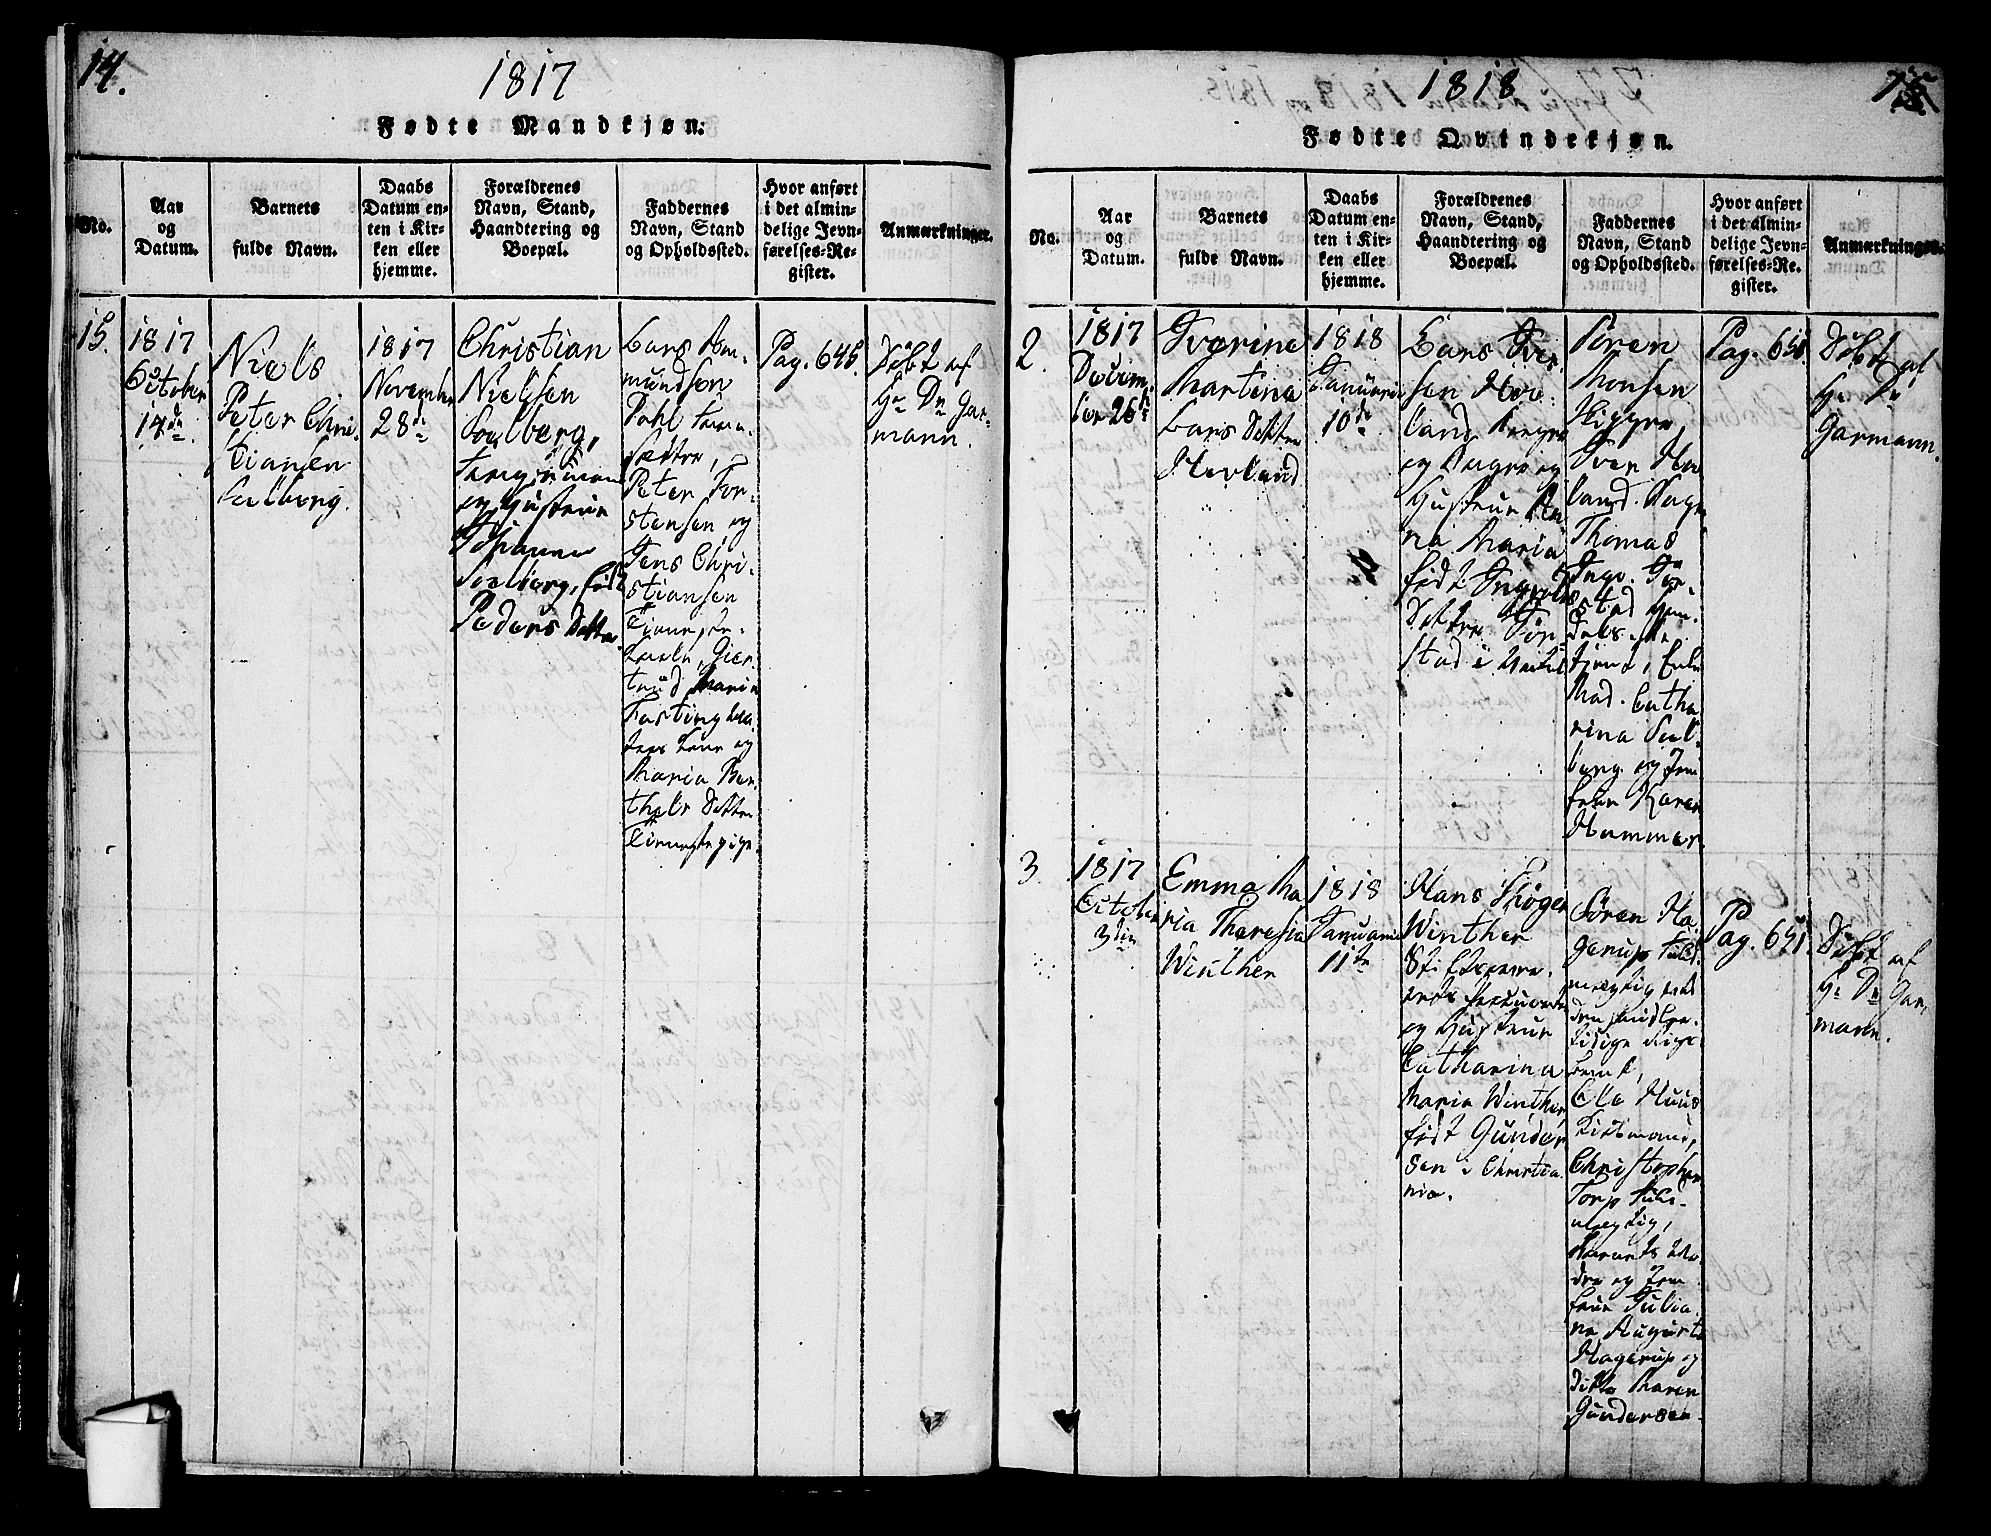 14.
1817
Fødte Mandkjøn.
No.
Aar
og
Datum.
Barnets
fulde Navn.
Daabs
Datum en-
ten i Kir-
ken eller
hjemme.
Forældrenes
Navn, Stand,
Haandtering og
Boepæl.
Faddernes
Navn, Stand
og Opholdssted.
Hvor anført
i det almin-
delige Jevn-
førelses-Re-
gister.
Anmærkninger.
15.
1817
October
14de
Niels
Peter Chri-
stiansen
Salberg.
1817
November
28de
Christian
Nielsen
Soelberg,
og Hustrue
Johanne
Soelberg, født
Peders Datter
Lars Am-
mundsen
Dahl
Peter Tor-
stensen og
Jens Chri-
stiansen
Tieneste-
karle, Gier-
trud Maria
Fasting
og
Maria Ber-
thels Datter
Tienestepige.
Pag. 645.
Døbt af
Hr Dn Gar-
mann.
1818
15
Fødte Qvindekjøn.
No.
Aar
og
Datum.
Barnets
fulde Navn.
Daabs
Datum en-
ten i Kir-
ken eller
hjemme.
Forældrenes
Navn, Stand,
Haandtering og
Boepæl.
Faddernes
Navn, Stand
og Opholdssted.
Hvor anført
i det almin-
delige Jevn-
førelses-Re-
gister.
Anmærkninger.
2.
1817
Decem-
ber 26de
Iverine
Martine
Lars Datter
Hevland
1818
Januarii
10de
Lars Iver-
sen Hov-
land
og Hustrue An-
na Maria
født Ingvolds
Datter Tør-
stad i
Søren
Monsen
Iver Hov-
land
Thomas
Ingv. Tør-
stad
Mad. Catha-
rina Sal-
berg og Jom-
frue Karen
Hammer
Pag. 651.
Døbt af
Hr Dn
Garmann.
3.
1817
October
3die
Emma Ma-
ria Theresia
Winther
1818
Januarii
11te
Hans Thøger
Winther
og Hustrue
Catharina
Maria Winther
født Gunder-
sen i Christia-
nia.
Søren Ha-
gerup Fuld-
mægtig ved
Ole Huus
Kiøbmand,
Christopher
Torp Fuld-
mægtig,
Barnets Mo-
dre og Jom-
frue Julia-
na Augusta
Hagerup og
ditto Maren
Gundersen.
Pag. 651.
Døbt af
Hr Dn Gar-
mann.